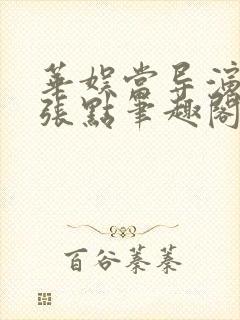 華娛當导演
張點筆趣閣
百谷蓁蓁